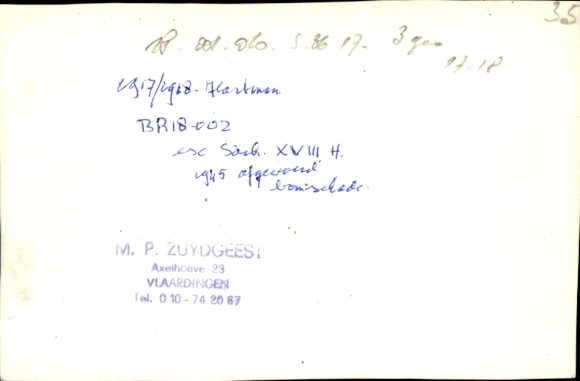 35
S. 36 17- 3 ges
17.18
1917/1918. Hartman
BR18-002
ex Säch. XVIII H.
1945 afgevoerd
bomschade.
M. P. ZUYDGEEST
Axelhoeve 23
VLAARDINGEN
Tel. 010-74 20 67